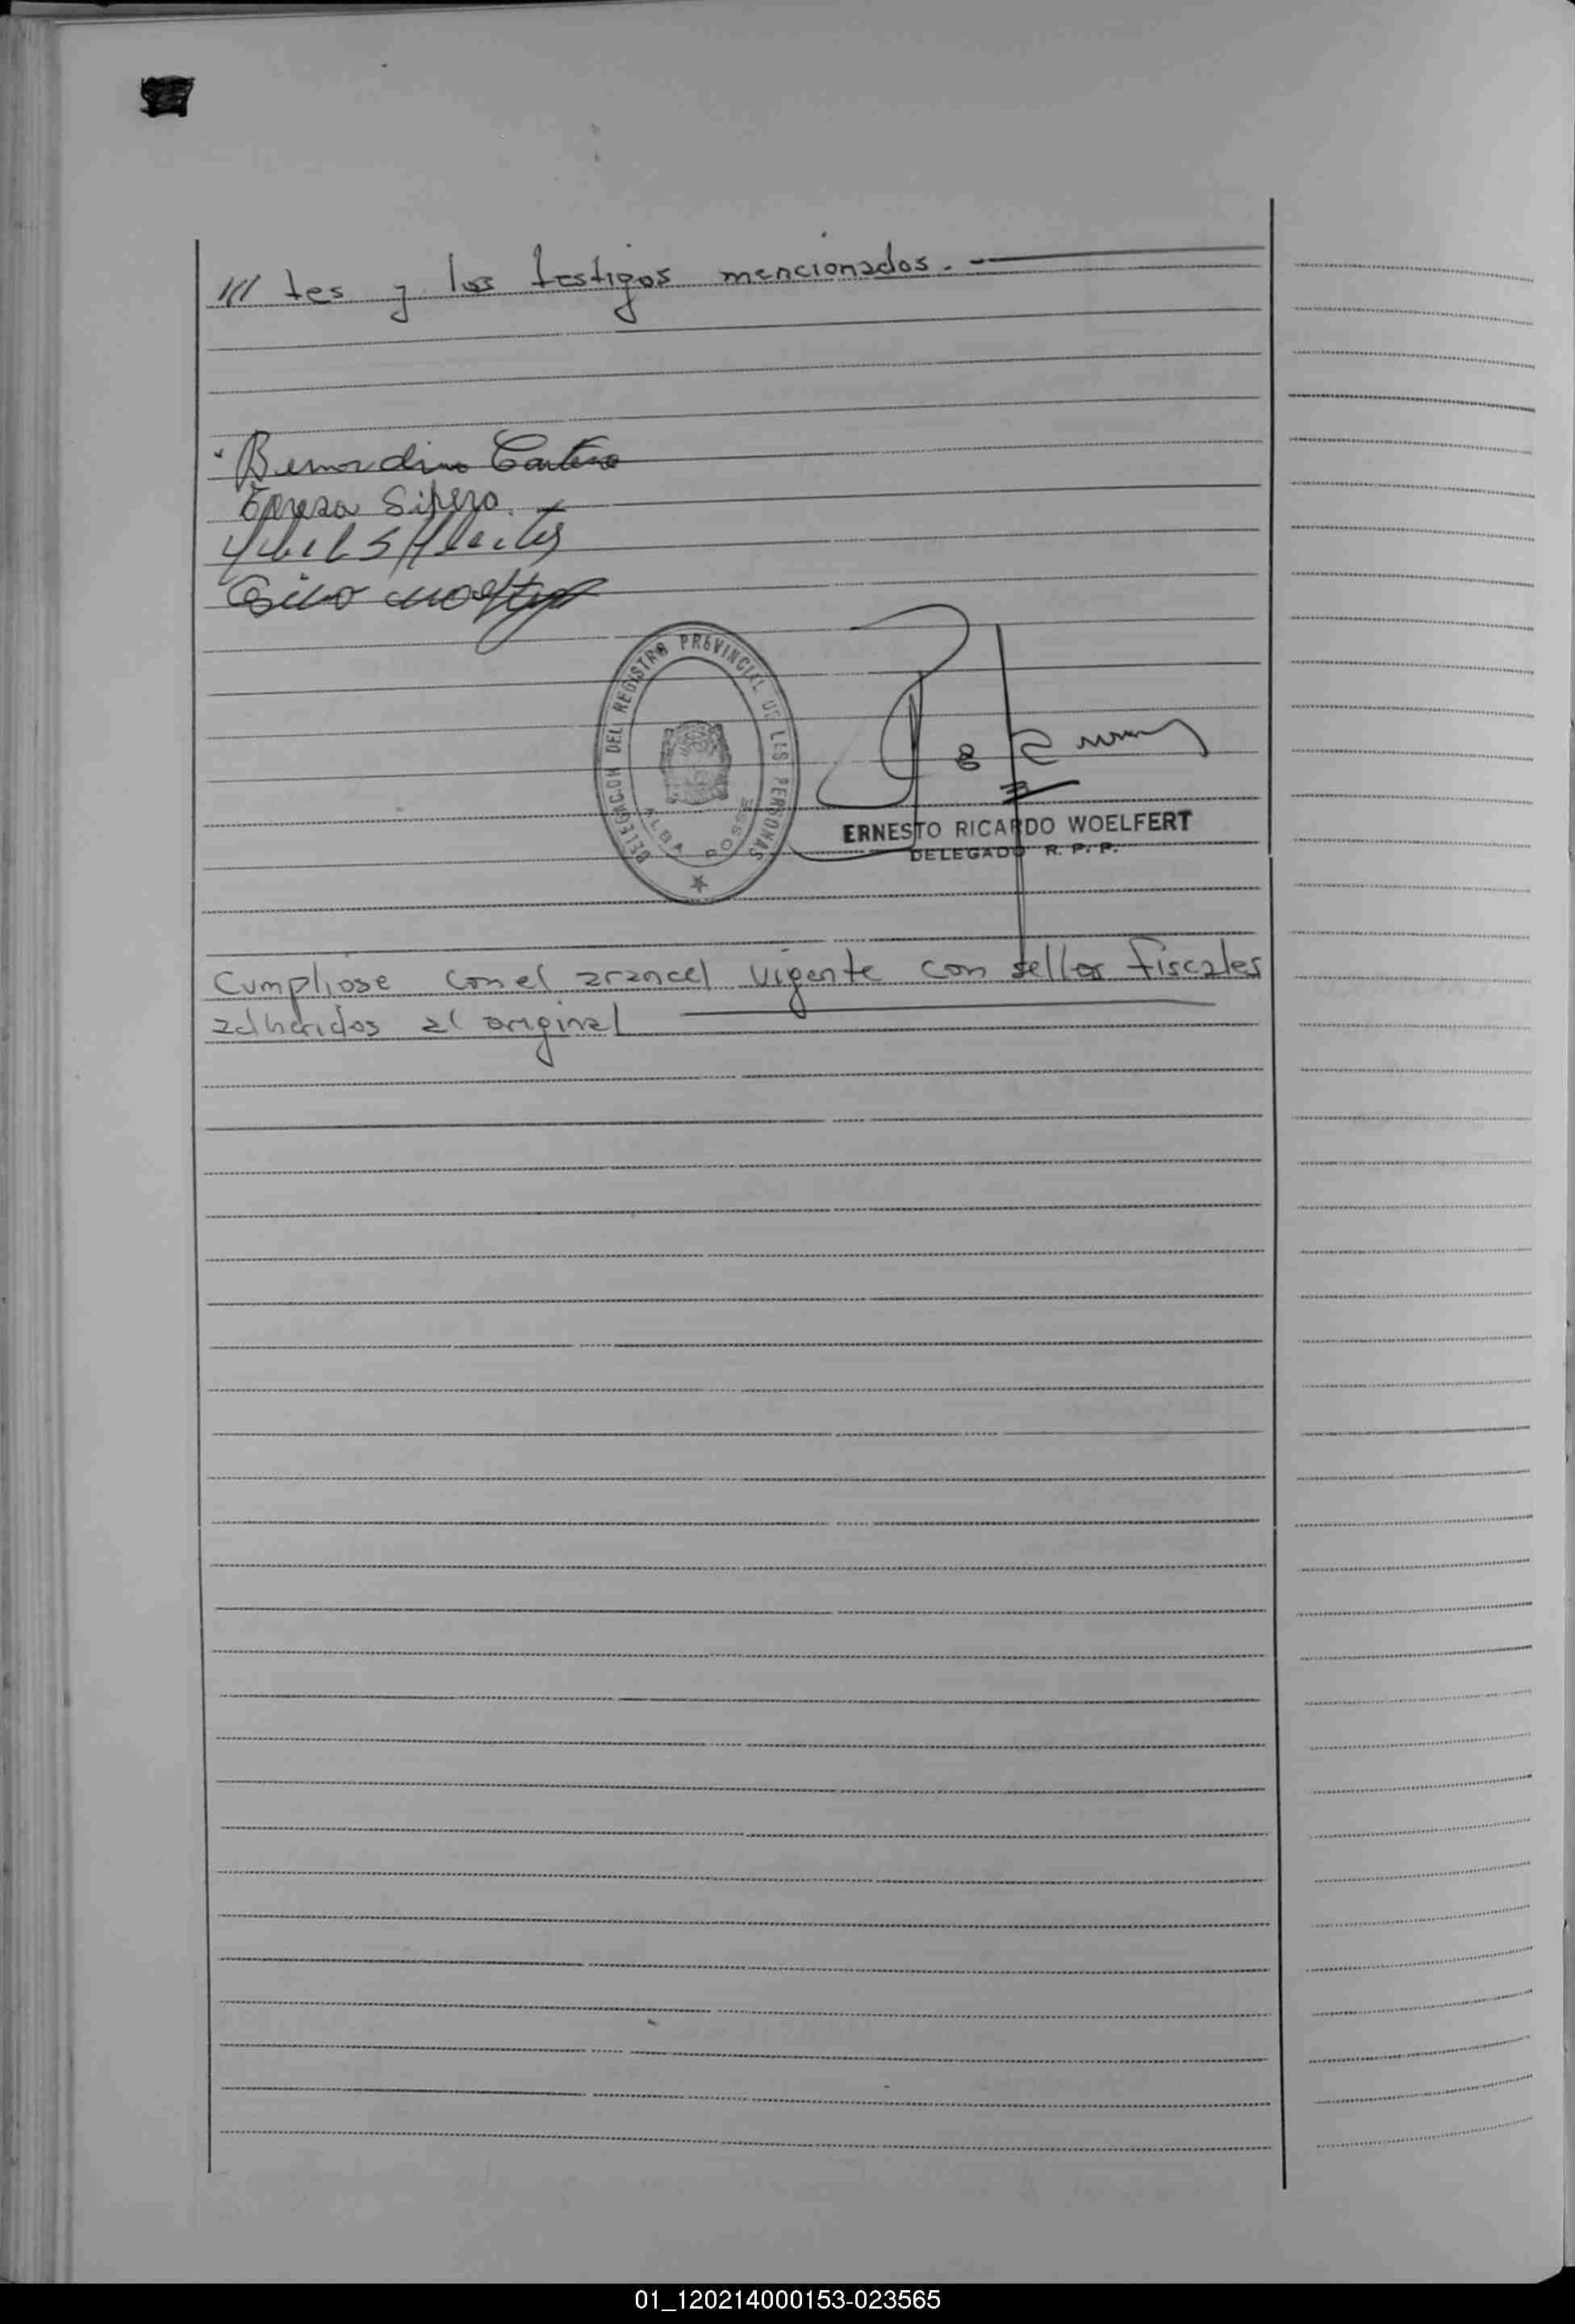 /// tes y los testigos mencionados. -
Bernardino
Teresa Sipero.
DELEGACION DEL REGISTRO PROVINCIAL DE LAS PERSONAS
ALBA POSSE
ERNESTO RICARDO WOELFERT
DELEGADO R. P. P.
Cumpliose con el arancel vigente con sellos fiscales
adheridos al original
01_120214000153-023565